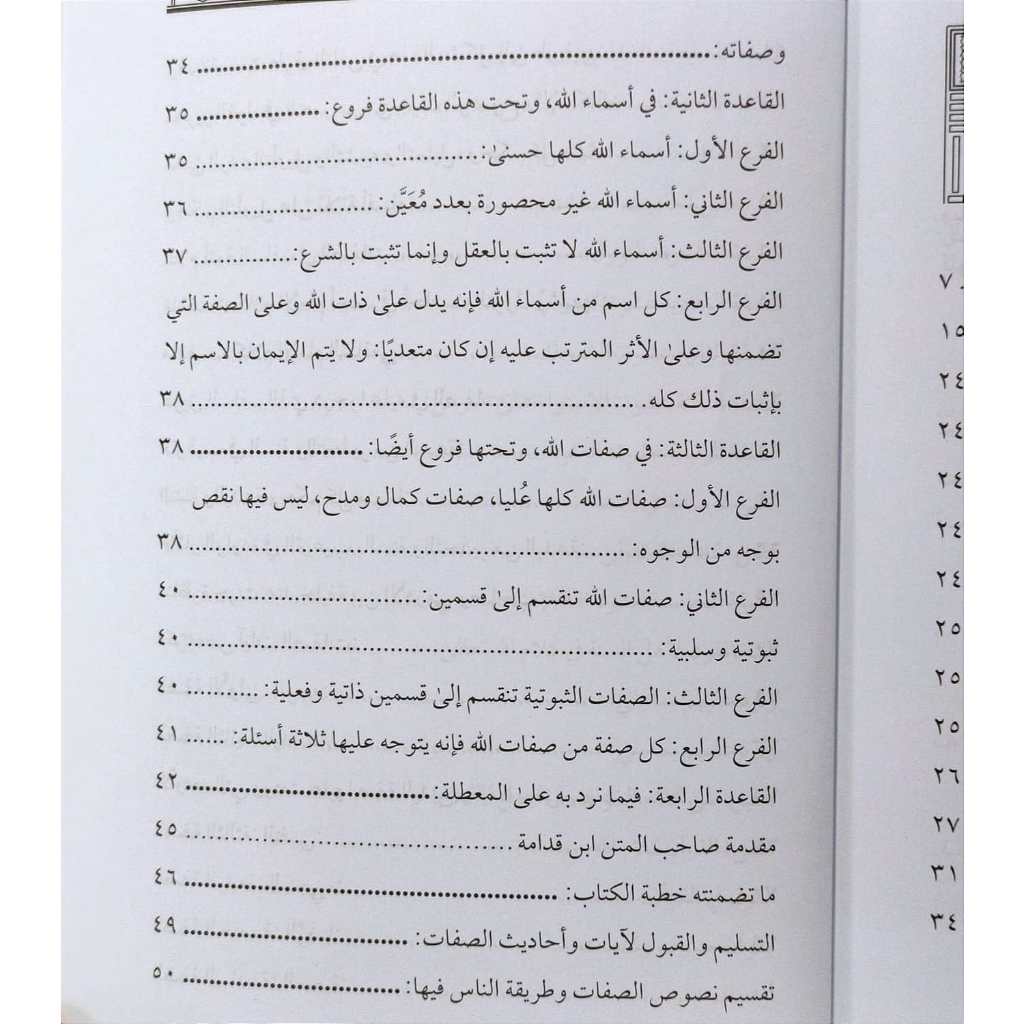 وصفاته: ................ ٣٤
القاعدة الثانية: في أسماء الله، وتحت هذه القاعدة فروع: ................ ٣٥
الفرع الأول: أسماء الله كلها حسنىٰ: ................ ٣٥
الفرع الثاني: أسماء الله غير محصورة بعدد مُعَيَّن: ................ ٣٦
الفرع الثالث: أسماء الله لا تثبت بالعقل وإنما تثبت بالشرع: ................ ٣٧
الفرع الرابع: كل اسم من أسماء الله فإنه يدل علىٰ ذات الله وعلىٰ الصفة التي
تضمنها وعلىٰ الأثر المترتب عليه إن كان متعديًا: ولا يتم الإيمان بالاسم إلا
بإثبات ذلك كله. ................ ٣٨
القاعدة الثالثة: في صفات الله، وتحتها فروع أيضًا: ................ ٣٨
الفرع الأول: صفات الله كلها عُليا، صفات كمال ومدح، ليس فيها نقص
بوجه من الوجوه: ................ ٣٨
الفرع الثاني: صفات الله تنقسم إلىٰ قسمين: ................ ٤٠
ثبوتية وسلبية: ................ ٤٠
الفرع الثالث: الصفات الثبوتية تنقسم إلىٰ قسمين ذاتية وفعلية: .......... ٤٠
الفرع الرابع: كل صفة من صفات الله فإنه يتوجه عليها ثلاثة أسئلة: ...... ٤١
القاعدة الرابعة: فيما نرد به علىٰ المعطلة: ................ ٤٢
مقدمة صاحب المتن ابن قدامة ................ ٤٥
ما تضمنته خطبة الكتاب: ................ ٤٦
التسليم والقبول لآيات وأحاديث الصفات: ................ ٤٩
تقسيم نصوص الصفات وطريقة الناس فيها: ................ ٥٠
٧
١٥
٢٤
٢٤
٢٤
٢٤
٢٤
٢٥
٢٥
٢٥
٢٦
٢٧
٣١
٣٤